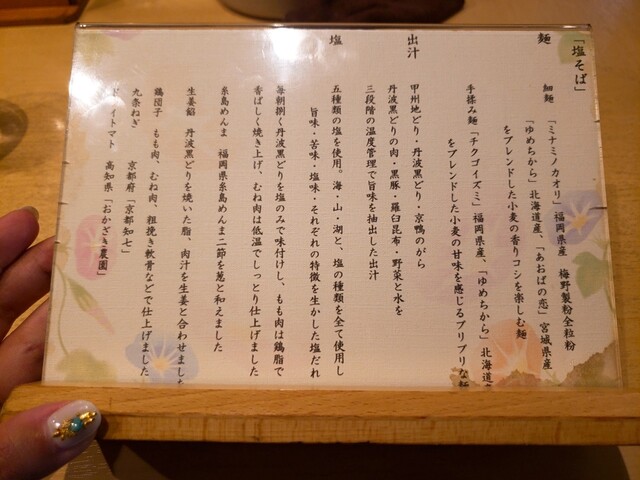 「塩そば」
麺
細麺 「ミナミノカオリ」福岡県産 梅野製粉全粒粉
「ゆめちから」北海道産、「あおばの恋」宮城県産
をブレンドした小麦の香りコシを楽しむ麺
手揉み麺「チクゴイズミ」福岡県産、「ゆめちから」北海道
をブレンドした小麦の甘味を感じるプリプリな麺
出汁
甲州地どり・丹波黒どり・京鴨のがら
丹波黒どりの肉・黒豚・羅臼昆布・野菜と水を
三段階の温度管理で旨味を抽出した出汁
塩
五種類の塩を使用。海・山・湖と、塩の種類を全て使用し
旨味・苦味・塩味・それぞれの特徴を生かした塩だれ
毎朝捌く丹波黒どりを塩のみで味付けし、もも肉は鶏脂で
香ばしく焼き上げ、むね肉は低温でしっとり仕上げました
糸島めんま 福岡県糸島めんま二節を葱と和えました
生姜餡 丹波黒どりを焼いた脂、肉汁を生姜と合わせました
鶏団子 もも肉、むね肉、粗挽き軟骨などで仕上げました
九条ねぎ 京都府「京都知七」
ドライトマト 高知県「おかざき農園」